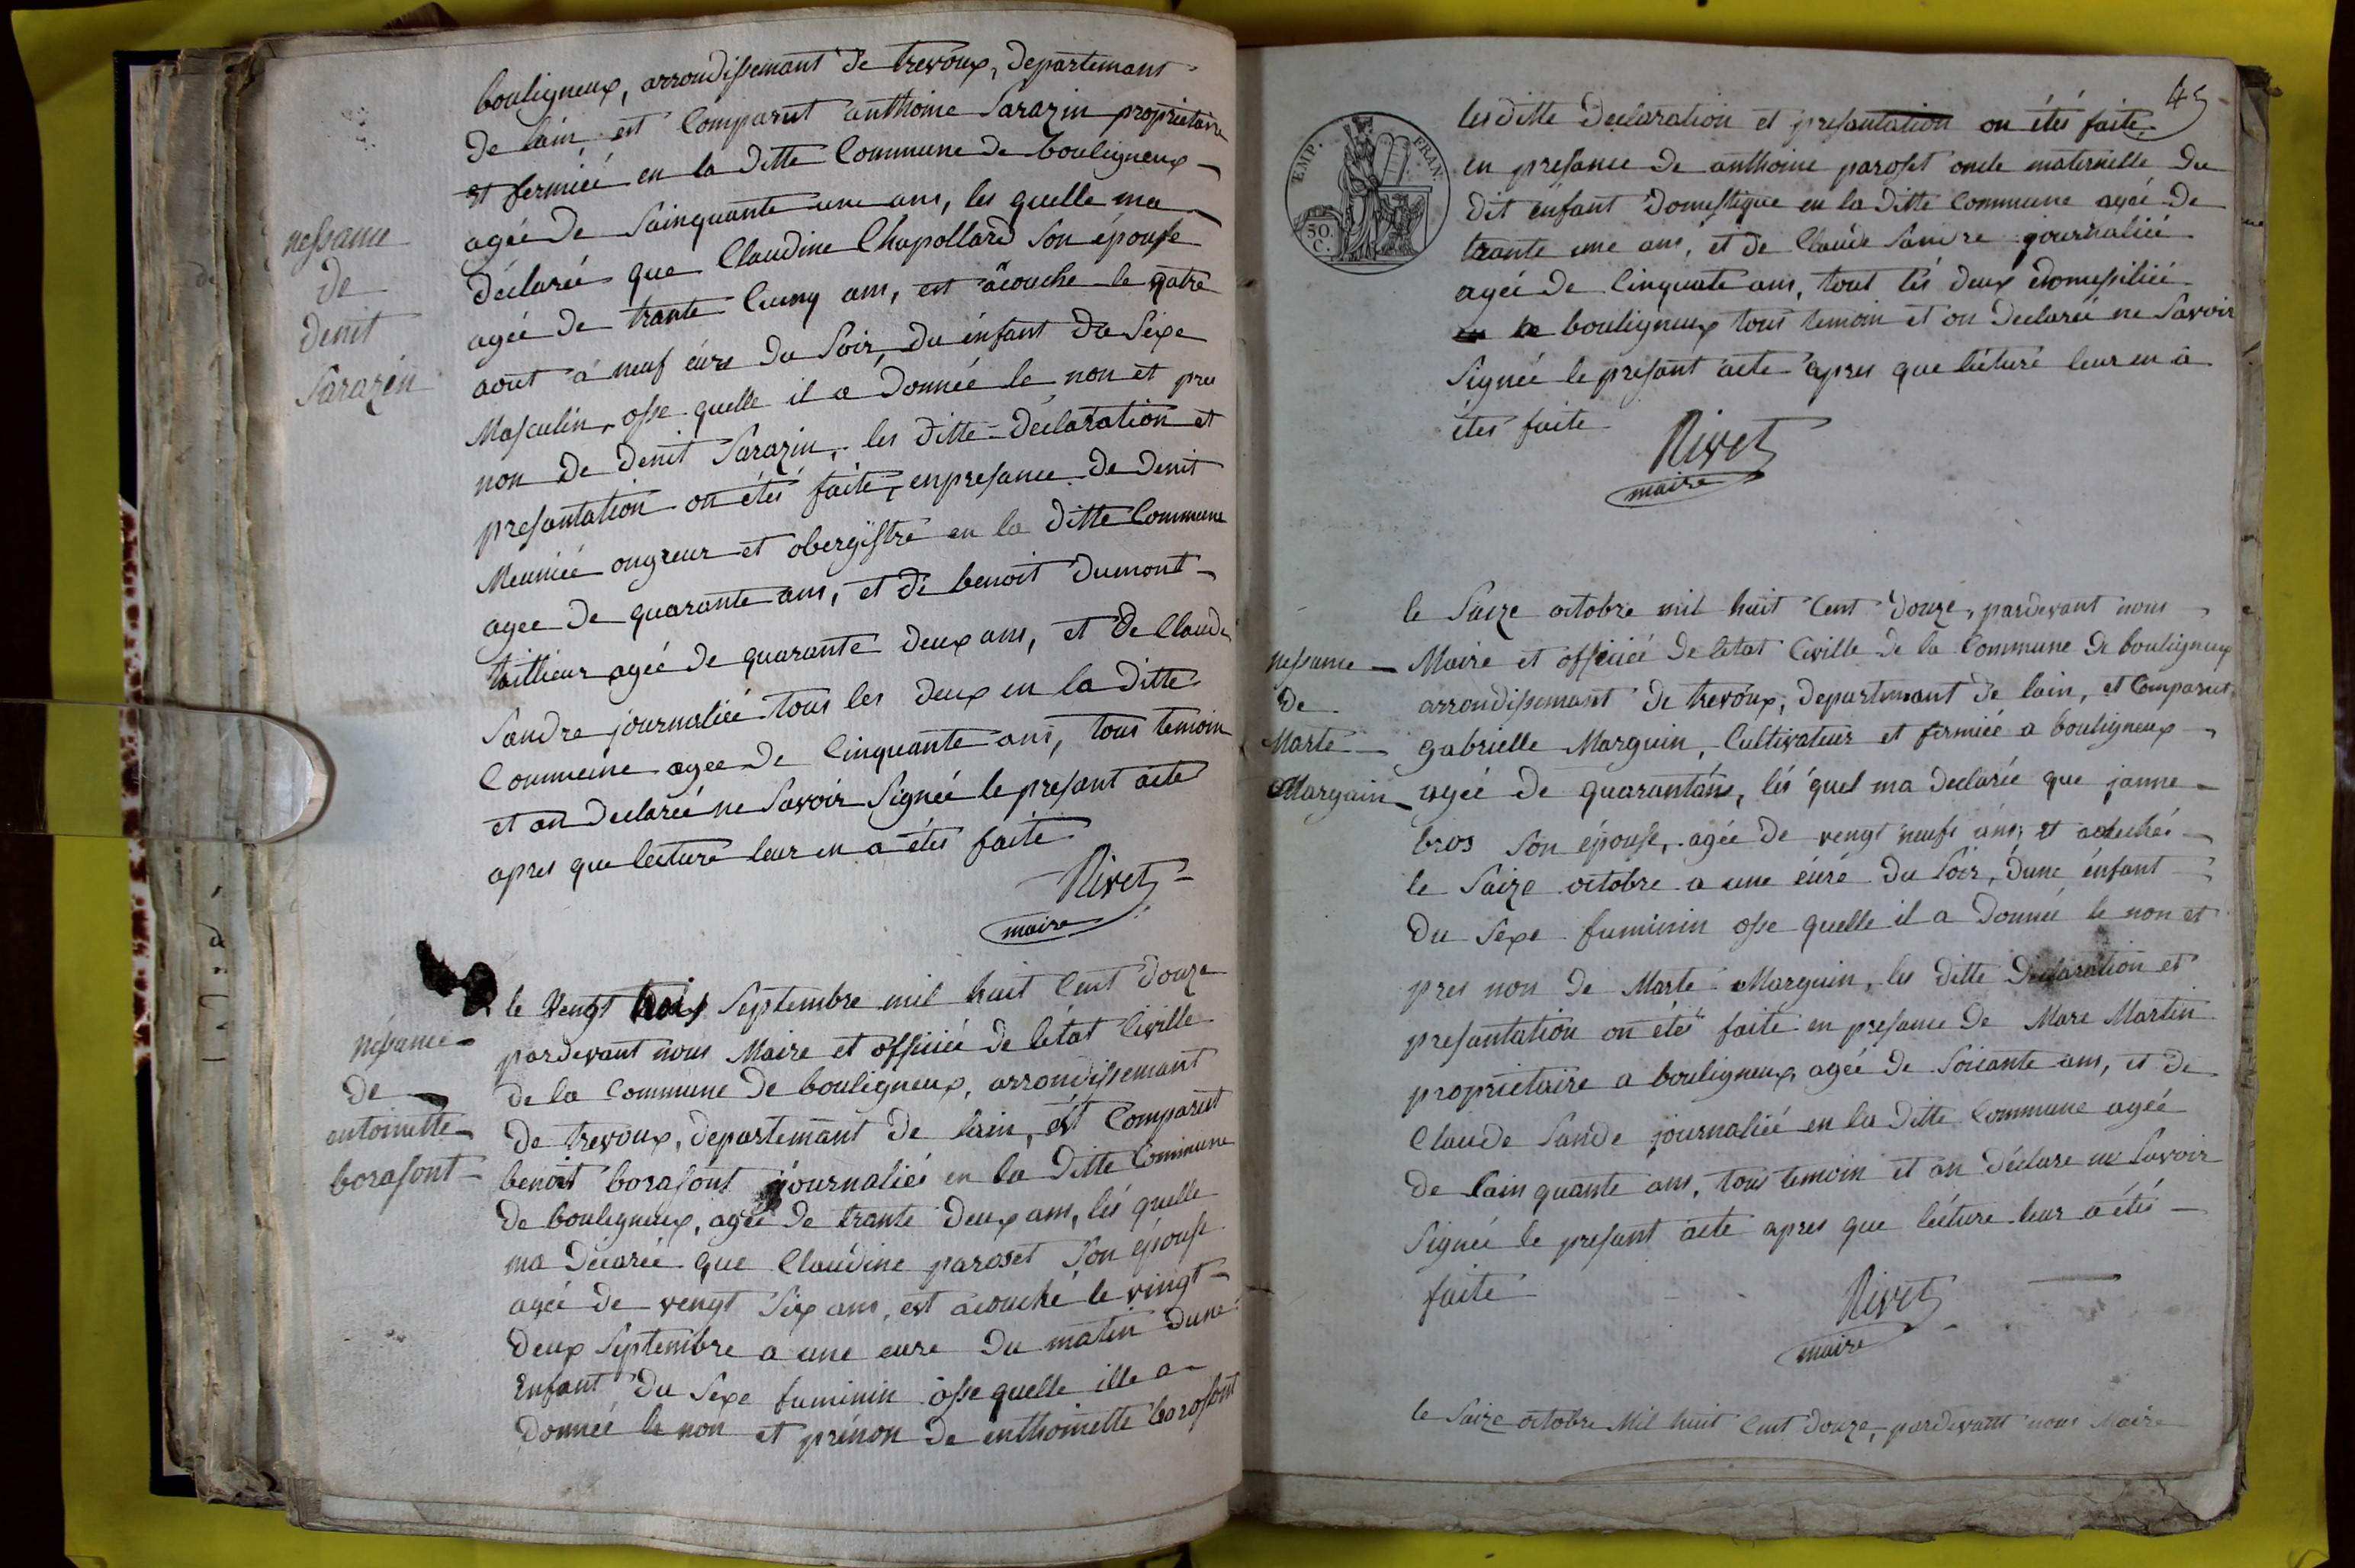 bouligneux, arrondissemant de trevoux, departemant
de lain est Comparut anthoine Sarazin proprietaire
et fermiéé en la ditte Commune de bouligneux
agéé de Sainquante une ans, les quelle ma
déclaréé que Claudine Chapollard Son épouse
agéé de trante Cuinq ans, est acouché le qatre
aout a neuf éure du Soir, du énfant du Sexe
Masculin, osse quelle il a donnéé le non et pre
non de denit Sarazin, les ditte déclaration et
presantation on étéé faite, en presance de denit
Meuniéé ongreur et obergistre en la ditte Commune
agee de quarante ans, et de benoit dumont
taillieur agéé de quarante deux ans, et de Claude
Sandre journaliéé tous les deux en la ditte
Commune agee de Cinquante ans, tous temoin
et on declaréé ne Savoir Signéé le présant acte
apres que lecture leur en a étéé faite
Rivet
maire
nessance
de
denit
Sarazin
le Vengt trois Septembre mil huit Cent douze
pardevant nous Maire et officiéé de létat Civille
de la Commune de bouligneux, arrondissemant
de trevoux, departemant de lain, ést Comparut
benoit borasont journaliéé en la ditte Commune
de bouligneux, agéé de trante deux ans, lés quelle
ma decaréé que Claudine paroset Son épouse
agéé de vengt Six ans, est acouché le vingt
deux Septembre a une eure du matin dune
Enfant du Sexe fuminin osse quelle ille a
donnéé le non et prénon de enthoinette borosont
nessance
de
entoinette
borasont
45
EMP. FRAN.
50.
C.
les ditte declaration et presantation on étéé faite
en presance de anthoine paroset oncle maternelle du
dit énfant domestique en la ditte Commune agéé de
trante une ans, et de Claude Sandre journaliéé
agéé de Cinquate ans, tout lés deux domesiliéé
bouligneux tous temoin et on declaréé ne Savoir
Signéé le présant acte apres que lécture leur en a
étéé faite
Rivet
maire
le Saize octobre mil huit Cent douze, pardevant nous
Maire et officiéé de létat Civille de la Commune de bouligneux
arrondissemant de trevoux, departemant de lain, et Comparut
gabrielle Marguin, Cultivateur et fermiéé a bouligneux
agéé de quarantáns, lés quel ma declaréé que janne
bros Son épouse, agée de vengt neufs ans, et acouchéé
le Saize octobre a une éure du Soir, dune énfant
du Sexe fuminin osse quelle il a donnéé le non et
pres non de Marte Marguin, les ditte declaration et
presantation on étéé faite en presance de Marc Martin
proprietaire a bouligneux agéé de Soicante ans, et de
Claude Sande journaliéé en la ditte Commune agéé
de Cain quante ans, tous temoin et on déclare ne Savoir
Signéé le presant acte apres que lécture leur a étéé
faite
Rivet
maire
nessance
de
Marte
Margain
le Saize octobre Mil huit Cent douze, pardevant nous Maire